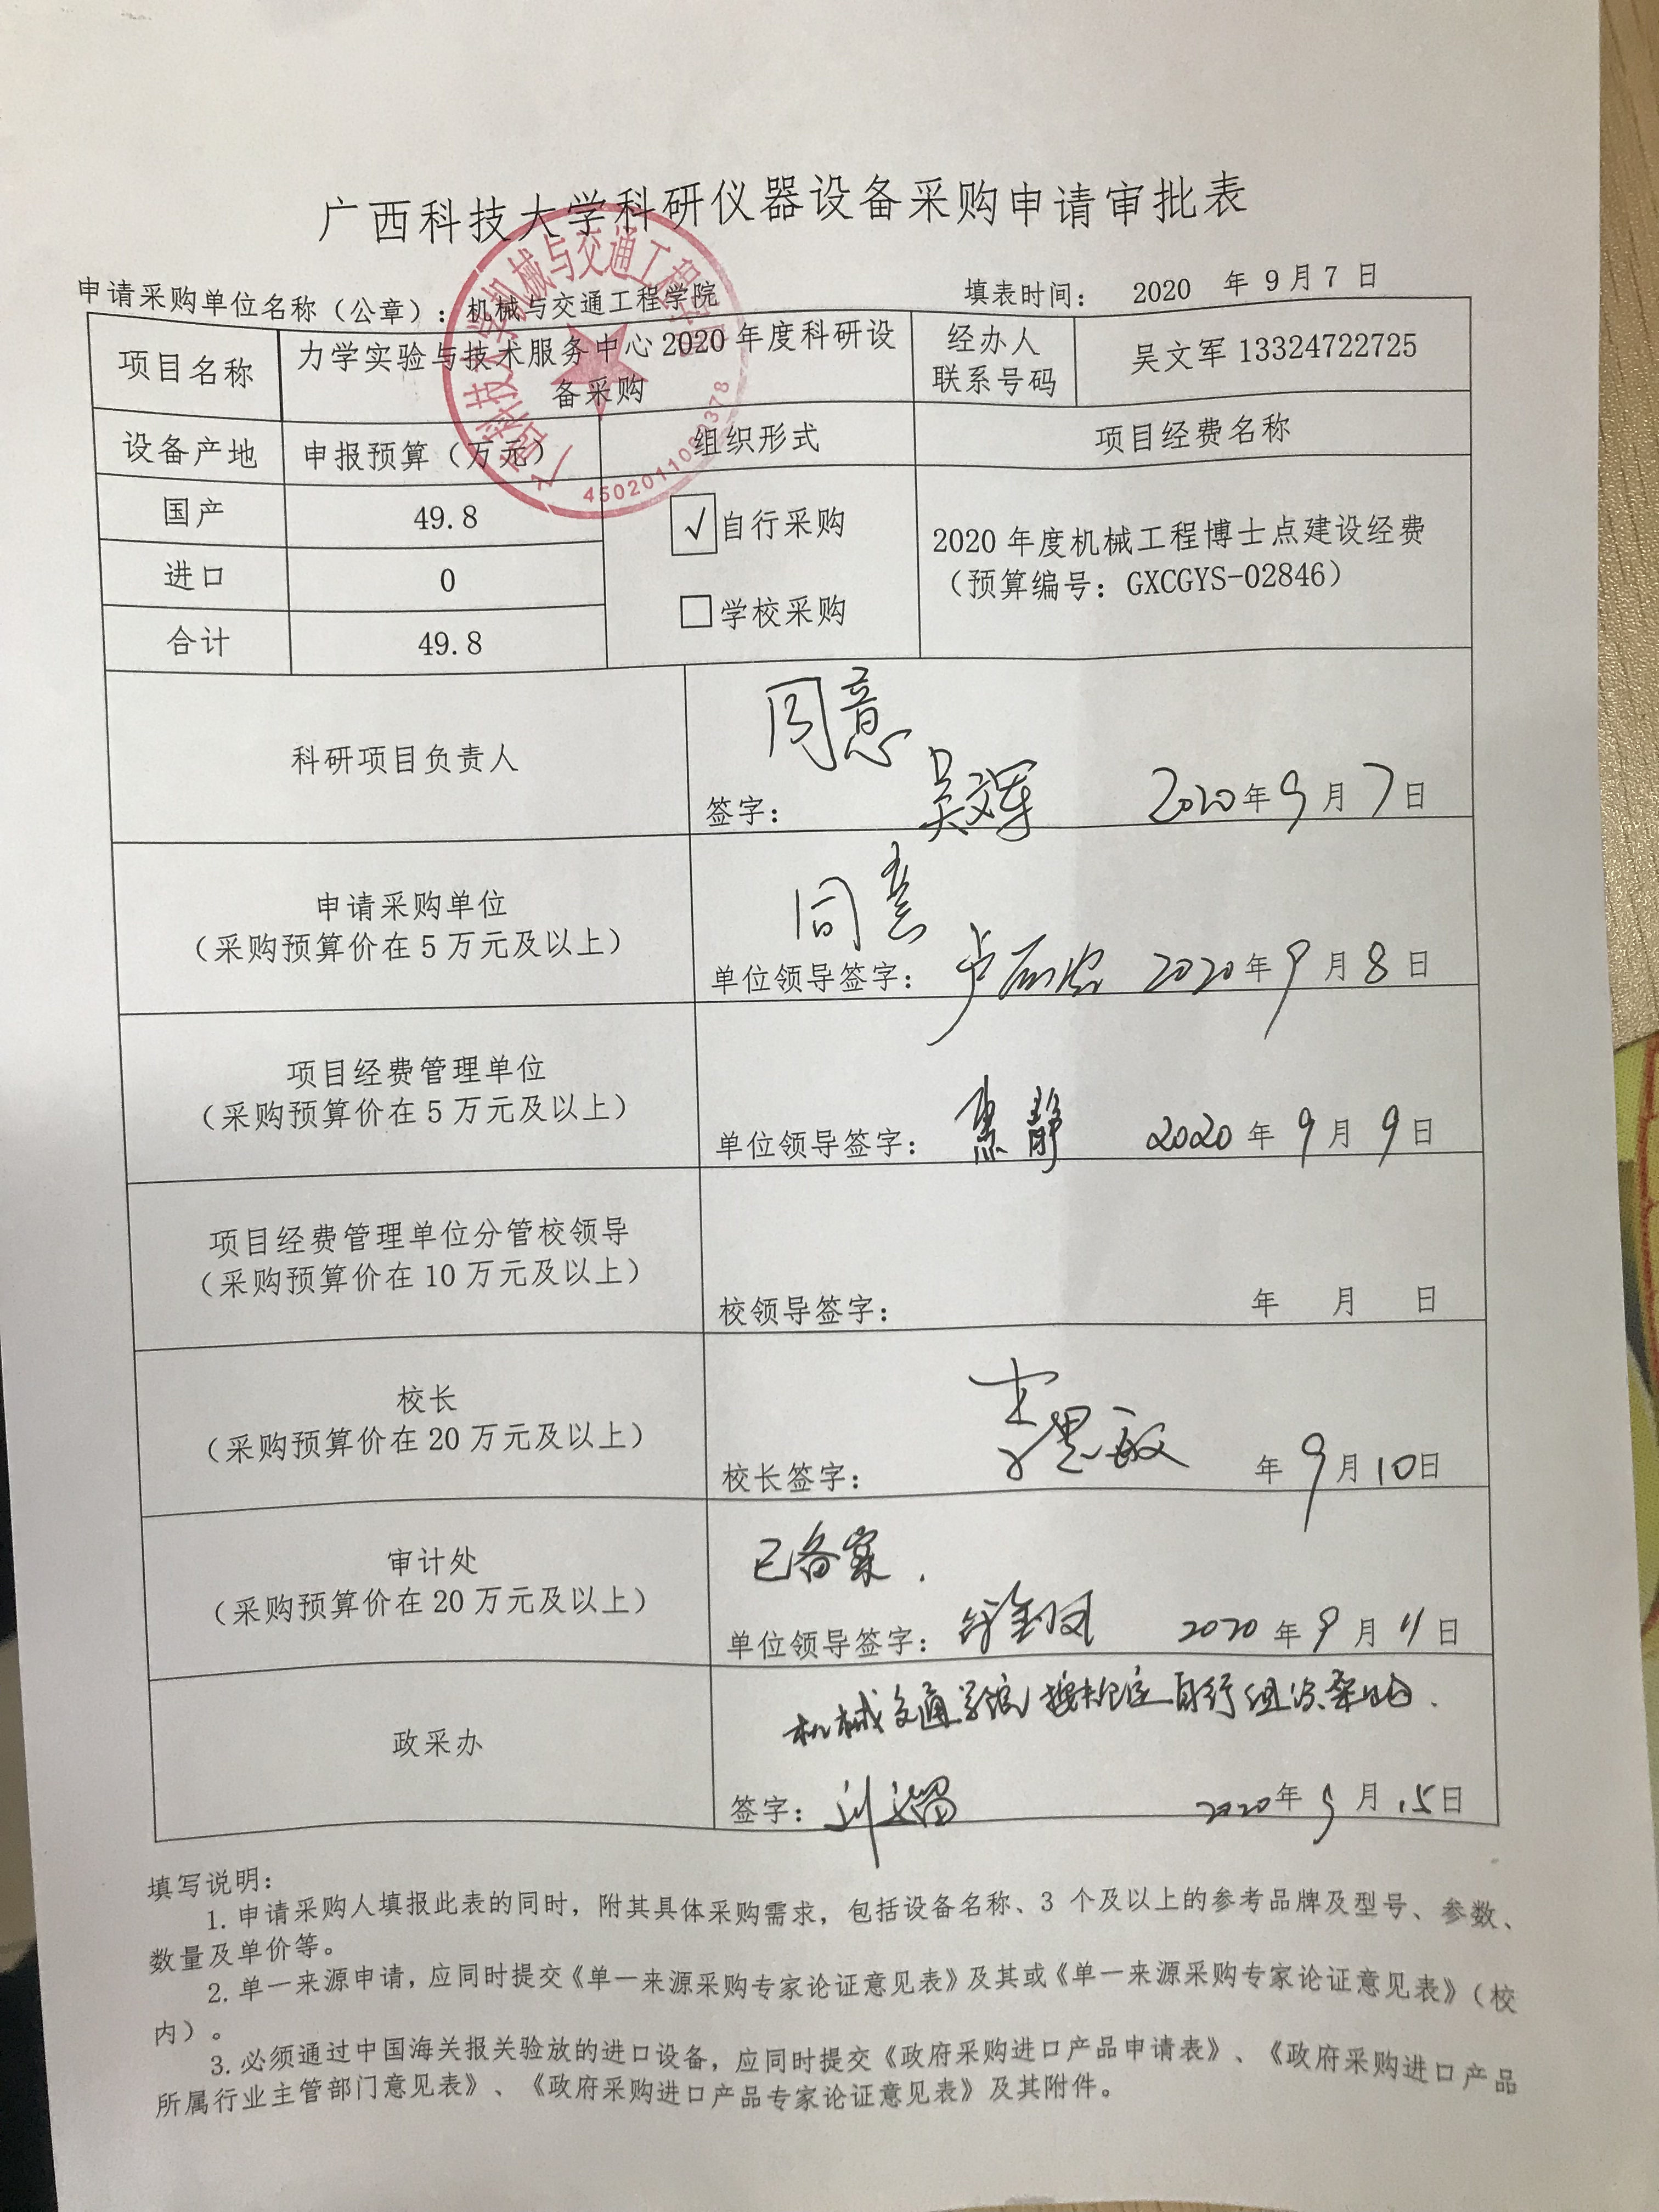 广西科技大学科研仪器设备采购申请审批表
申请采购单位名称（公章）：机械与交通工程学院
填表时间： 2020 年 9 月 7 日
项目名称
力学实验与技术服务中心 2020 年度科研设
备采购
经办人
联系号码
吴文军 13324722725
设备产地
申报预算（万元）
组织形式
项目经费名称
国产
49.8
√ 自行采购
2020 年度机械工程博士点建设经费
（预算编号：GXCGYS-02846）
进口
0
□学校采购
合计
49.8
科研项目负责人
同意
签字： 吴文军 2020 年 9 月 7 日
申请采购单位
（采购预算价在 5 万元及以上）
同意
单位领导签字： 2020 年 9 月 8 日
项目经费管理单位
（采购预算价在 5 万元及以上）
单位领导签字： 焦静 2020 年 9 月 9 日
项目经费管理单位分管校领导
（采购预算价在 10 万元及以上）
校领导签字： 年 月 日
校长
（采购预算价在 20 万元及以上）
校长签字： 李思敏 年 9 月 10 日
审计处
（采购预算价在 20 万元及以上）
已备案.
单位领导签字： 2020 年 9 月 11 日
政采办
机械交通学院按规定自行组织采购.
签字： 2020 年 9 月 15 日
填写说明：
1. 申请采购人填报此表的同时，附其具体采购需求，包括设备名称、3 个及以上的参考品牌及型号、参数、
数量及单价等。
2. 单一来源申请，应同时提交《单一来源采购专家论证意见表》及其或《单一来源采购专家论证意见表》（校
内）。
3. 必须通过中国海关报关验放的进口设备，应同时提交《政府采购进口产品申请表》、《政府采购进口产品
所属行业主管部门意见表》、《政府采购进口产品专家论证意见表》及其附件。